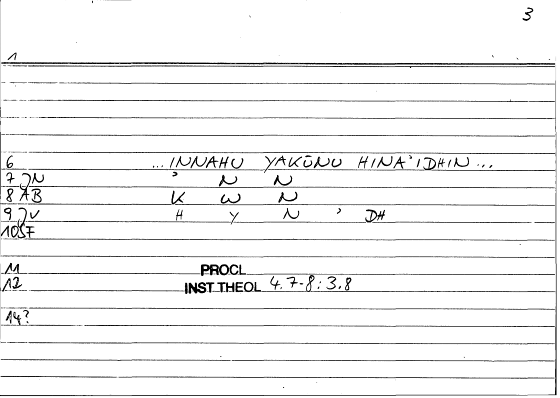 3
1
6 ...INNAHU YAKŪNU HINA'IDHIN...
7 JN ' N N
8 AB K W N
9 JV H Y N ' DH
10SF
11 PROCL
12 INST THEOL 4.7-8:3.8
14?